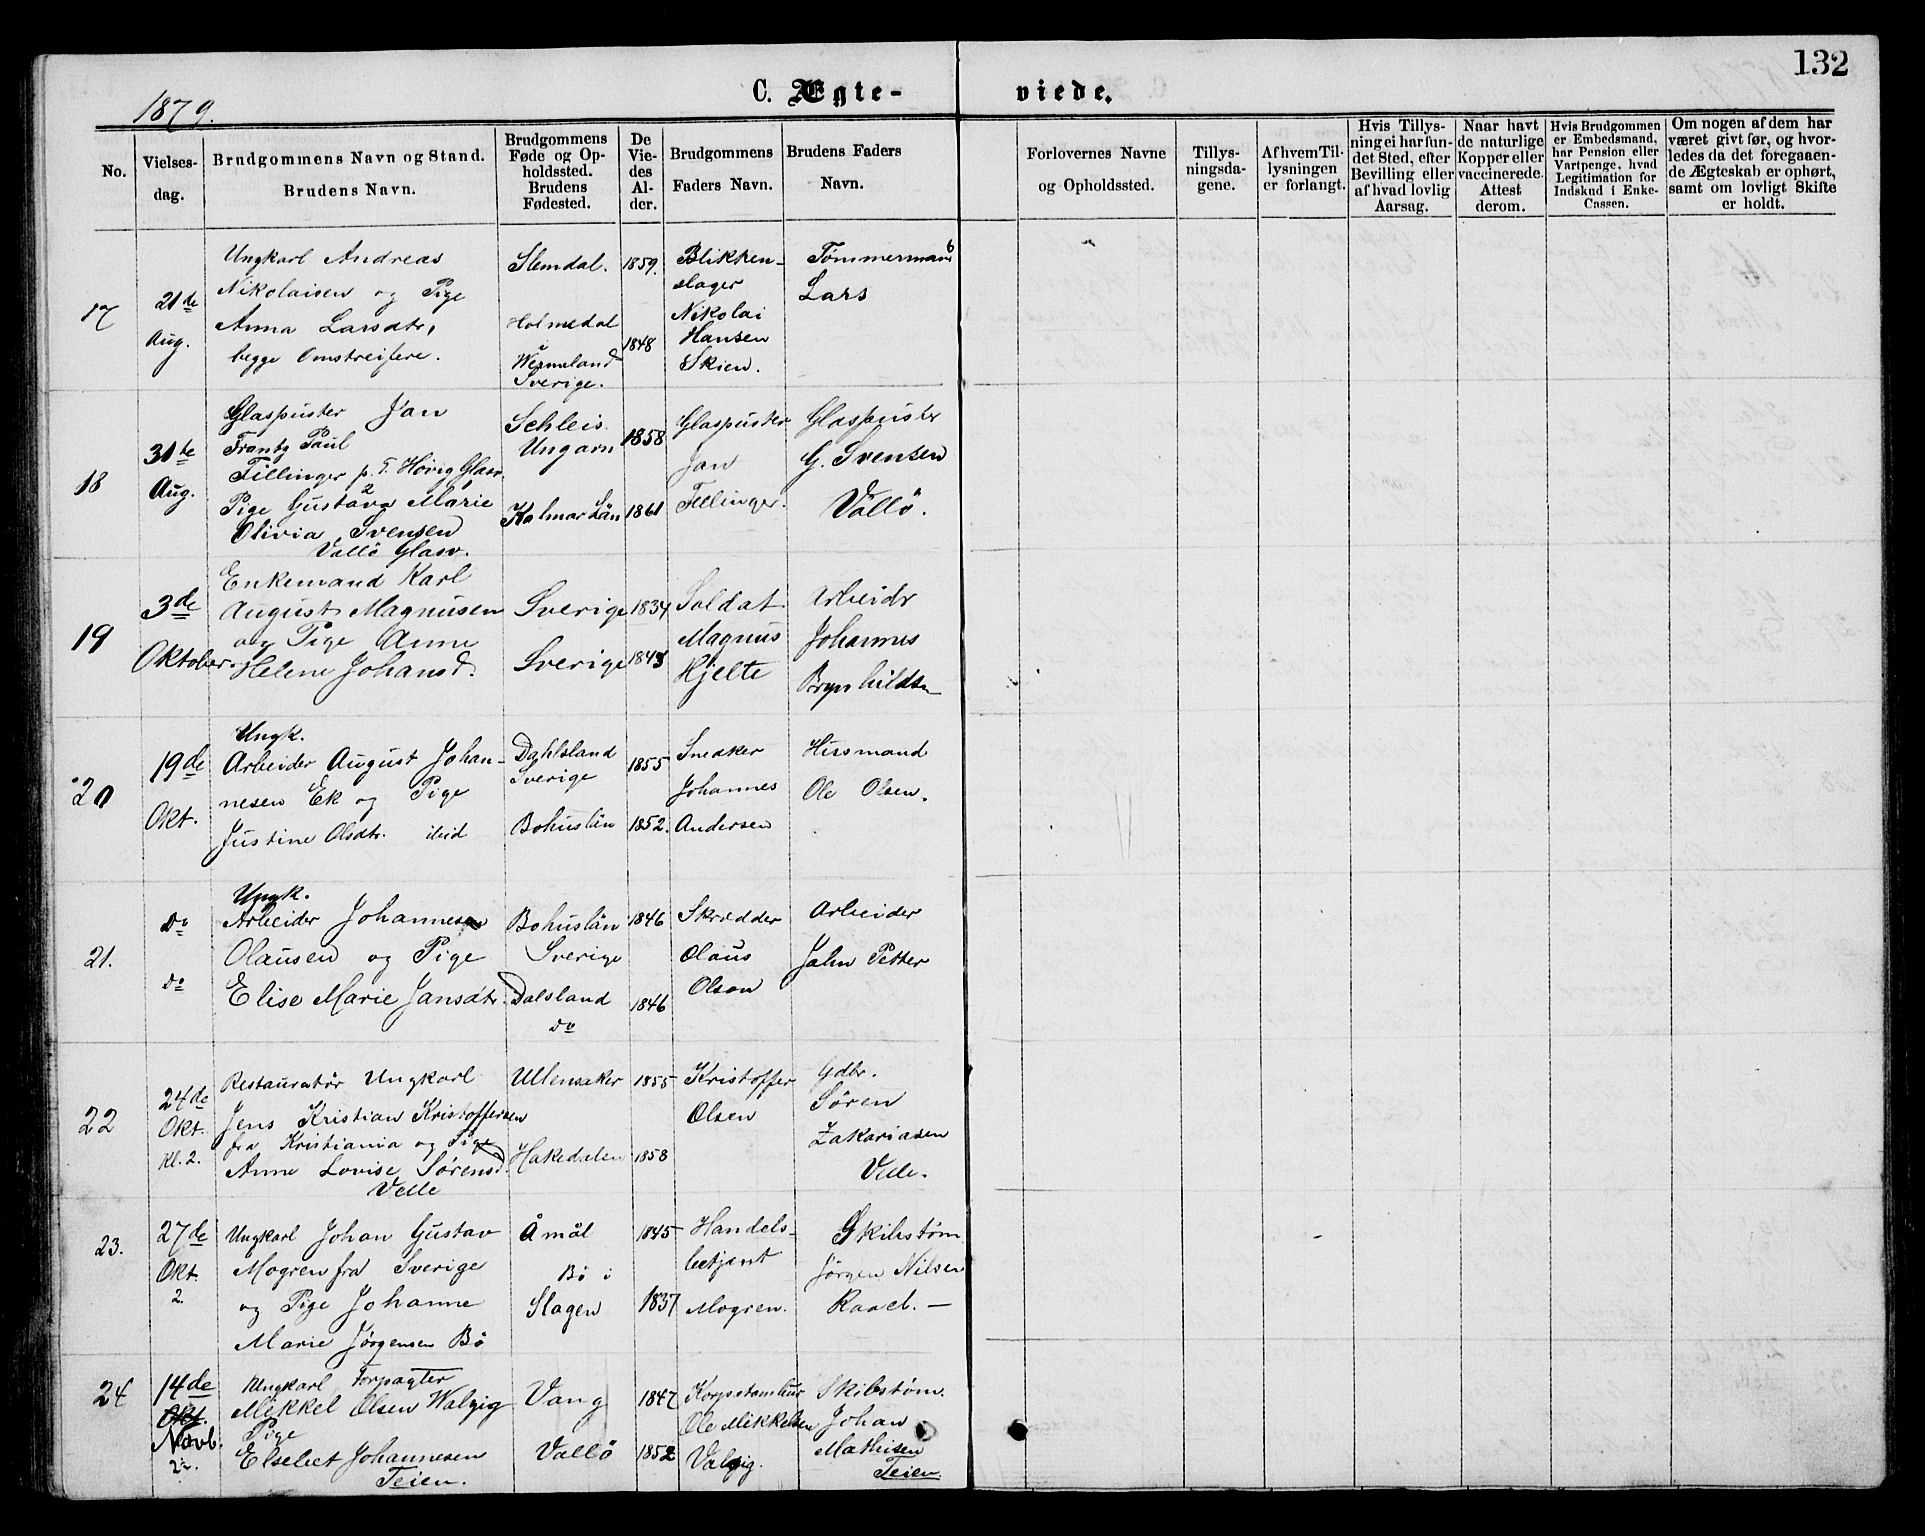 132
1879.
C. Ægte-
viede.
No.
Vielses-
dag.
Brudgommens Navn og Stand.
Brudens Navn.
Brudgommens
Føde og Op-
holdssted.
Brudens
Fødested.
De
Vie-
des
Al-
der.
Brudgommens
Faders Navn.
Brudens Faders
Navn.
Forlovernes Navne
og Opholdssted.
Tillys-
ningsda-
gene.
Af hvem Til-
lysningen
er forlangt.
Hvis Tillys-
ning ei har fun-
det Sted, efter
Bevilling eller
af hvad lovlig
Aarsag.
Naar havt
de naturlige
Kopper eller
vaccinerede.
Attest
derom.
Hvis Brudgommen
er Embedsmand,
har Pension eller
Vartpenge, hvad
Legitimation for
Indskud i Enke-
Cassen.
Om nogen af dem har
været givt før, og hvor-
ledes da det foregaaen-
de Ægteskab er ophørt,
samt om lovligt Skifte
er holdt.
17
21de
Aug.
Ungkarl Andreas
Nikolaisen og Pige
Anna Larsdtr,
begge Omstreifere.
Slemdal.
Holmedal
i
Wermeland
Sverige.
1859.
1848
Blikken-
slager
Nikolai
Hansen
Skien.
Tømmermand
Lars
18
31te
Aug.
Glaspuster Jan
Frantz Paul
Fillinger p. T. Høvig Glasv.
Pige Gustava Marie
Olivia Svensen
Vallö Glasv.
Schleis
Ungarn
Kalmar Län
1858
1861
Glaspuster
Jan
Fillinger.
Glaspuster
G. Svensen
Vallö.
19
3de
Oktober
Enkemand Karl
August Magnusen
og Pige Anne
Helene Johansd.
Sverige
Sverige
1834
1843
Soldat
Magnus
Hjelte
Arbeidr
Johannes
Brynhildsen
20
19de
Okt.
Ungk.
Arbeider August Johan-
nesen Ek og Pige
Justine Olsdtr. ibid
Dahlsland
Sverige
Bohuslän
1855
1852.
Snedker
Johannes
Andersen
Husmand
Ole Olsen.
21.
Do
Do
Ungk.
Arbeider Johannes
Olausen og Pige
Elise Marie Jansdtr.
Bohuslän
Sverige
Dalsland
Do
1846
1846
Skrædder
Olaus
Olson
Arbeider
Jahn Petter
22
24de
Okt.
Kl. 2.
Restauratör Ungkarl
Jens Kristian Kristoffersen
fra Kristiania og Pige
Anne Lovise Sørensd.
Velle
Ullensaker
Hakedalen
1855
1858
Kristoffer
Olsen
Gdbr.
Sören
Zakariasen
Velle.
23.
27de
Okt.
2.
Ungkarl Johan Gustav
Mogren fra Sverige
og Pige Johanne
Marie Jørgensen Bö
Åmål
Bö i
Slagen
1845
1837
Handels-
betjent
Mogren.
Skibstøm
Jørgen Nilsen
24
14de
Okt.
Novb.
Ungkarl Forpagter
Mikkel Olsen Walgig
Pige
Elsebet Johannesen
Teien.
Vang
Vallö
1847
1852
Korpstambur
Ole Mikkelsen
Valgig.
Skibstøm.
Johan
Mathisen
Teien.